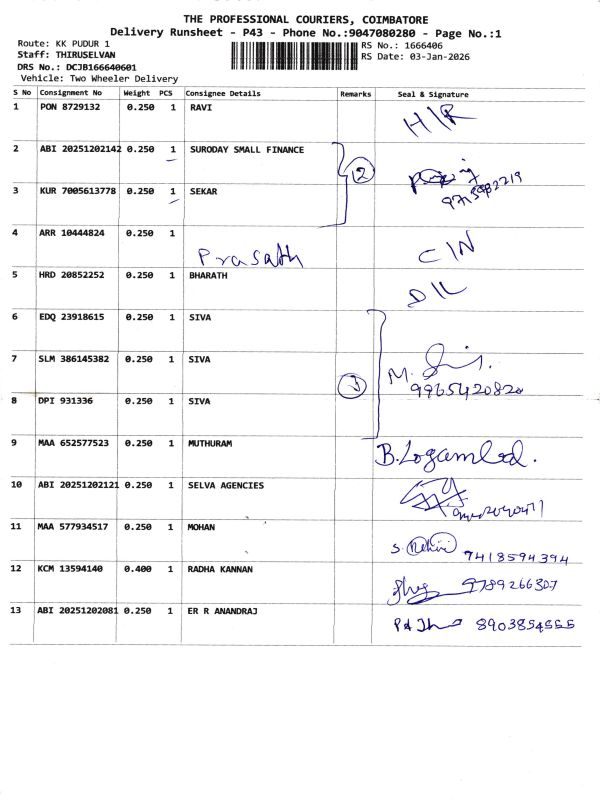 THE PROFESSIONAL COURIERS, COIMBATORE
Delivery Runsheet - P43 - Phone No.:9047080280 - Page No.:1
Route: KK PUDUR 1
RS No.: 1666406
Staff: THIRUSELVAN
RS Date: 03-Jan-2026
DRS No.: DCJB166640601
Vehicle: Two Wheeler Delivery
S No Consignment No Weight PCS Consignee Details Remarks Seal & Signature
1 PON 8729132 0.250 1 RAVI H/R
2 ABI 20251202142 0.250 1 SURODAY SMALL FINANCE
2
3 KUR 7005613778 0.250 1 SEKAR
4 ARR 10444824 0.250 1 Prasath C/N
5 HRD 20852252 0.250 1 BHARATH D/L
6 EDQ 23918615 0.250 1 SIVA
7 SLM 386145382 0.250 1 SIVA M.
3 9965420820
8 DPI 931336 0.250 1 SIVA
9 MAA 652577523 0.250 1 MUTHURAM B.Logambal.
10 ABI 20251202121 0.250 1 SELVA AGENCIES
11 MAA 577934517 0.250 1 MOHAN S. 7418594394
12 KCM 13594140 0.400 1 RADHA KANNAN 9789266307
13 ABI 20251202081 0.250 1 ER R ANANDRAJ 8903854555